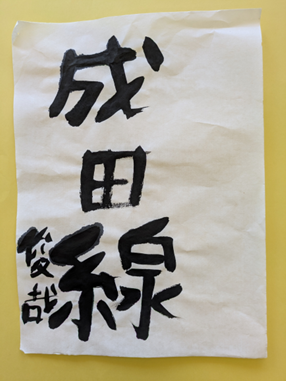 成田線
俊哉